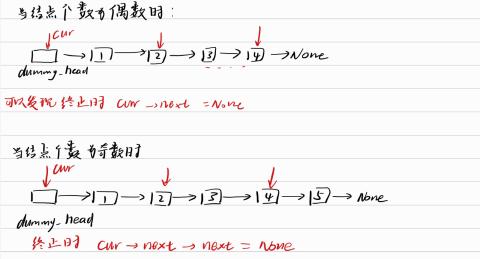 当结点个数为偶数时：
cur
1 2 3 4 None
dummy_head
可以发现终止时 cur → next = None
当结点个数为奇数时
cur
1 2 3 4 5 None
dummy_head
终止时 cur → next → next = None